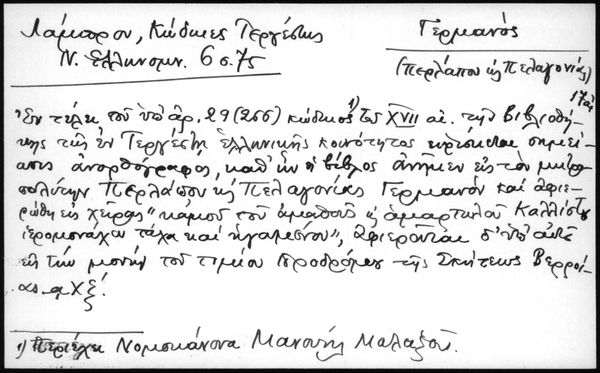 Λάμπρου, Κώδικες Τεργέστης
Ν. Ελληνομν. 6 σ. 75
Γερμανός
(Περλάπου κ Πελαγονίας)
17 αἰ.
Ἐν τέλει τοῦ ὑπ' ἀρ. 29 (266) κώδικος 1) τοῦ XVII αἰ. τῆς βιβλιοθή-
κης τῆς ἐν Τεργέστῃ Ἑλληνικῆς κοινότητος εὑρίσκεται σημεί-
ωσις ἀνορθόγραφος, καθ' ἣν ἡ βίβλος ἀνῆκεν εἰς τὸν μητρο-
πολίτην Περλάπου κ Πελαγονίας Γερμανὸν καὶ ἀφιε-
ρώθη εἰς χεῖρας "κἀμοῦ τοῦ ἀμαθοῦς κ ἁμαρτωλοῦ Καλλίστου
ἱερομονάχου τάχα καὶ ἡγουμένου", ἀφιεροῦται δ' ὑπ' αὐτοῦ
εἰς τὴν μονὴν τοῦ τιμίου Προδρόμου τῆς Σκήτεως Βερροί-
ας αχξ΄.
1) Περιέχει Νομοκάνονα Μανουὴλ Μαλαξοῦ.